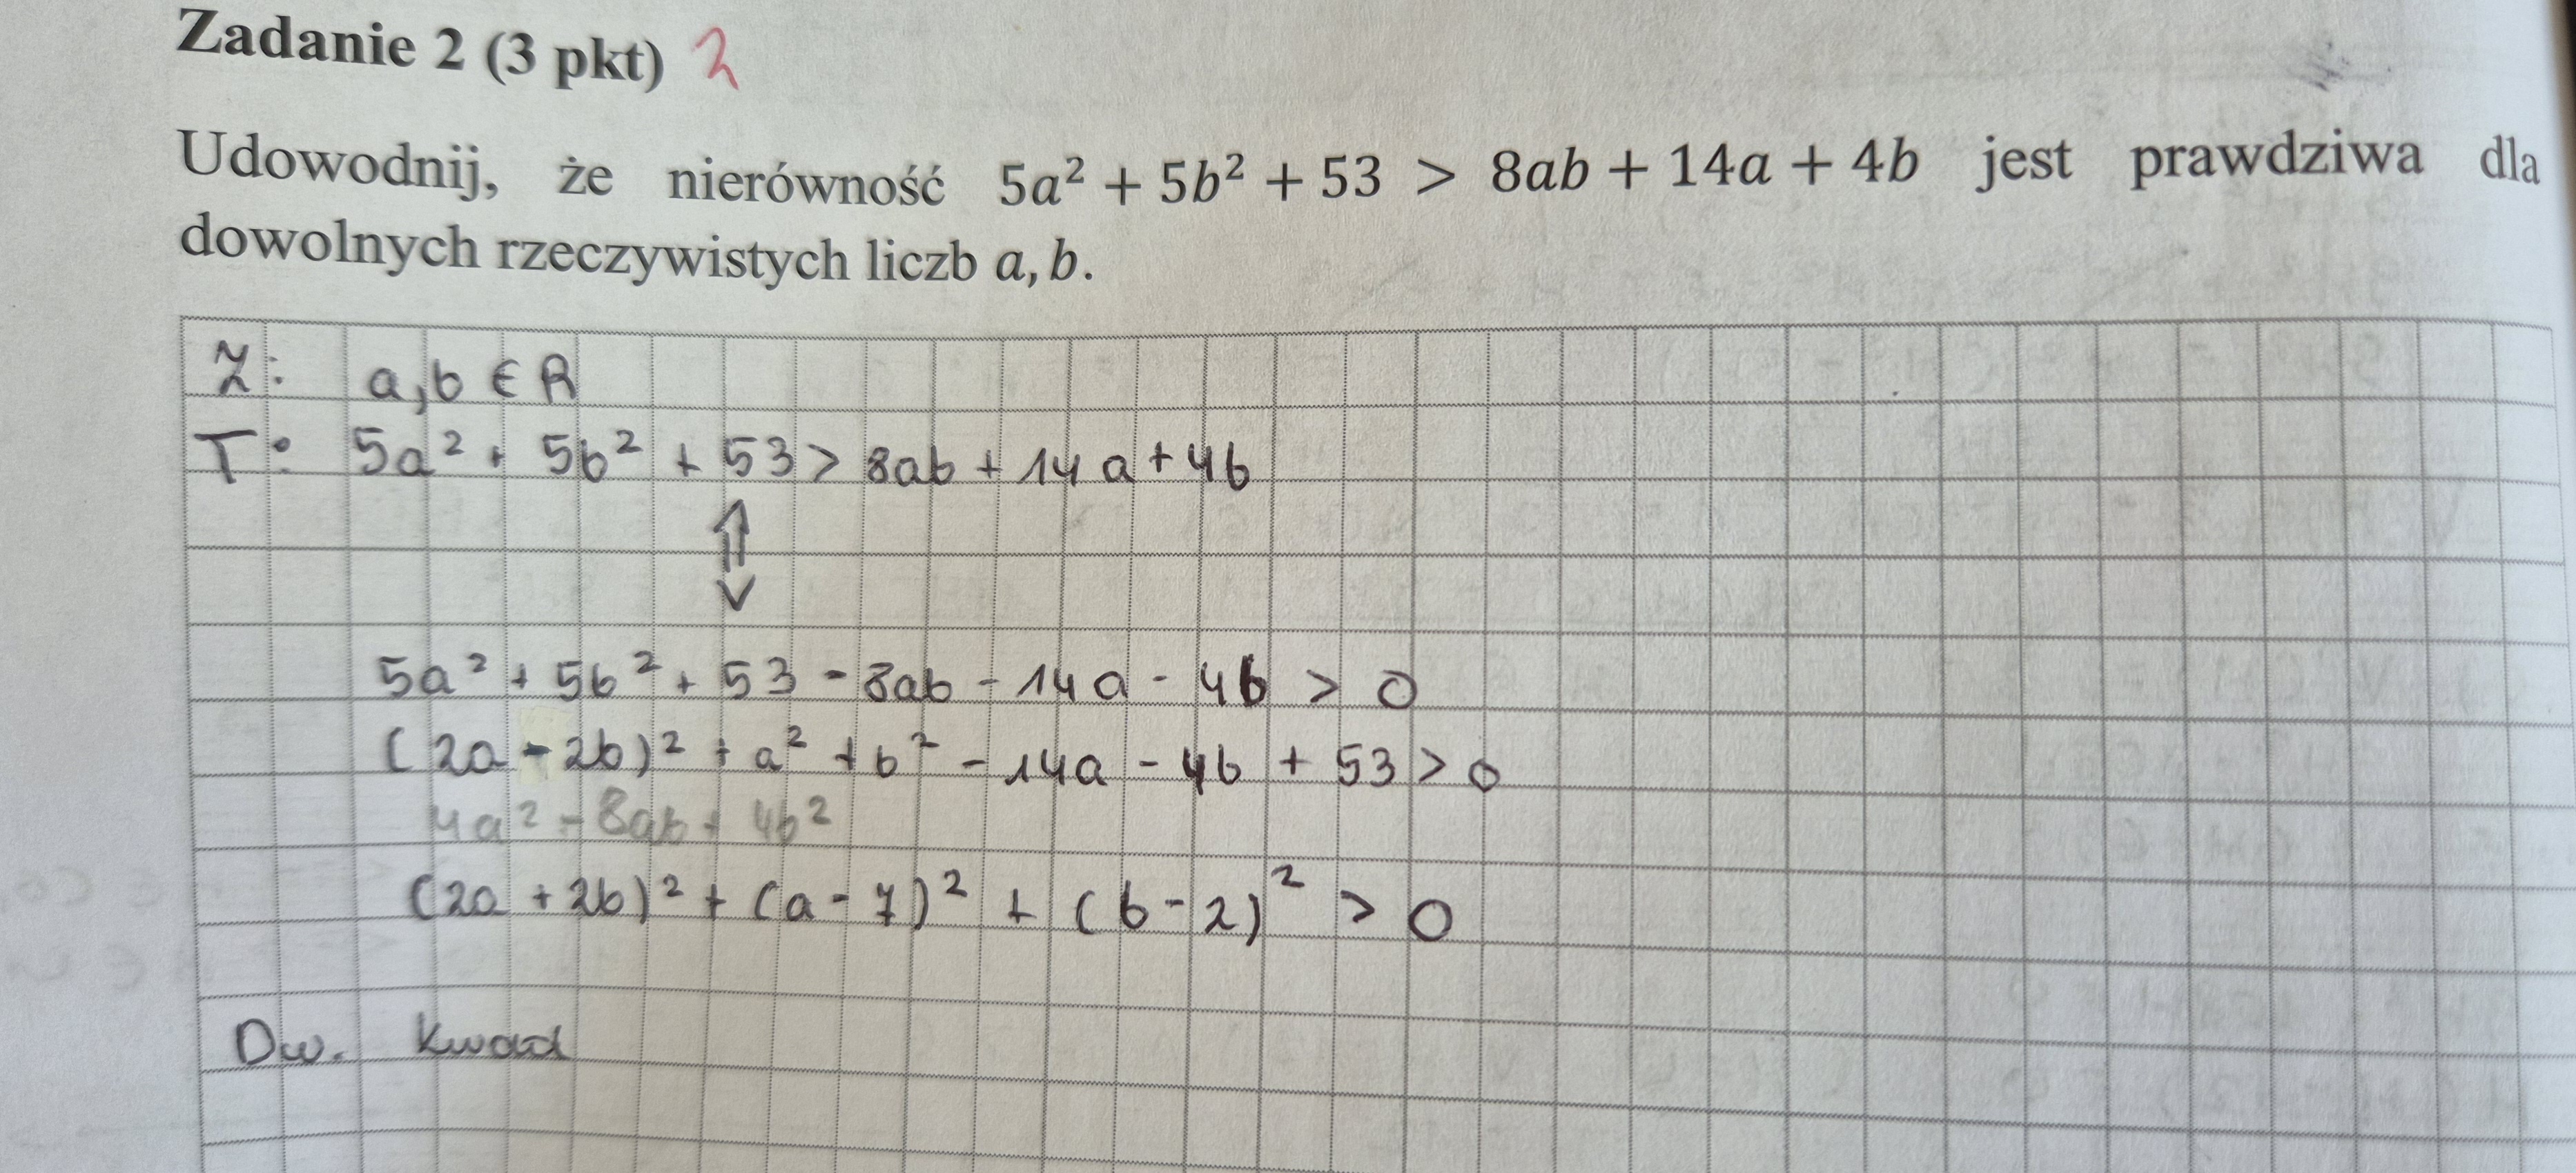 Zadanie 2 (3 pkt) 2
Udowodnij, że nierówność 5a² + 5b² + 53 > 8ab + 14a + 4b jest prawdziwa dla
dowolnych rzeczywistych liczb a, b.
Z: a,b ∈ R
T: 5a² + 5b² + 53 > 8ab + 14a + 4b
⇕
5a² + 5b² + 53 - 8ab - 14a - 4b > 0
(2a - 2b)² + a² + b² - 14a - 4b + 53 > 0
4a² - 8ab + 4b²
(2a + 2b)² + (a - 7)² + (b - 2)² > 0
Dw. Kwad